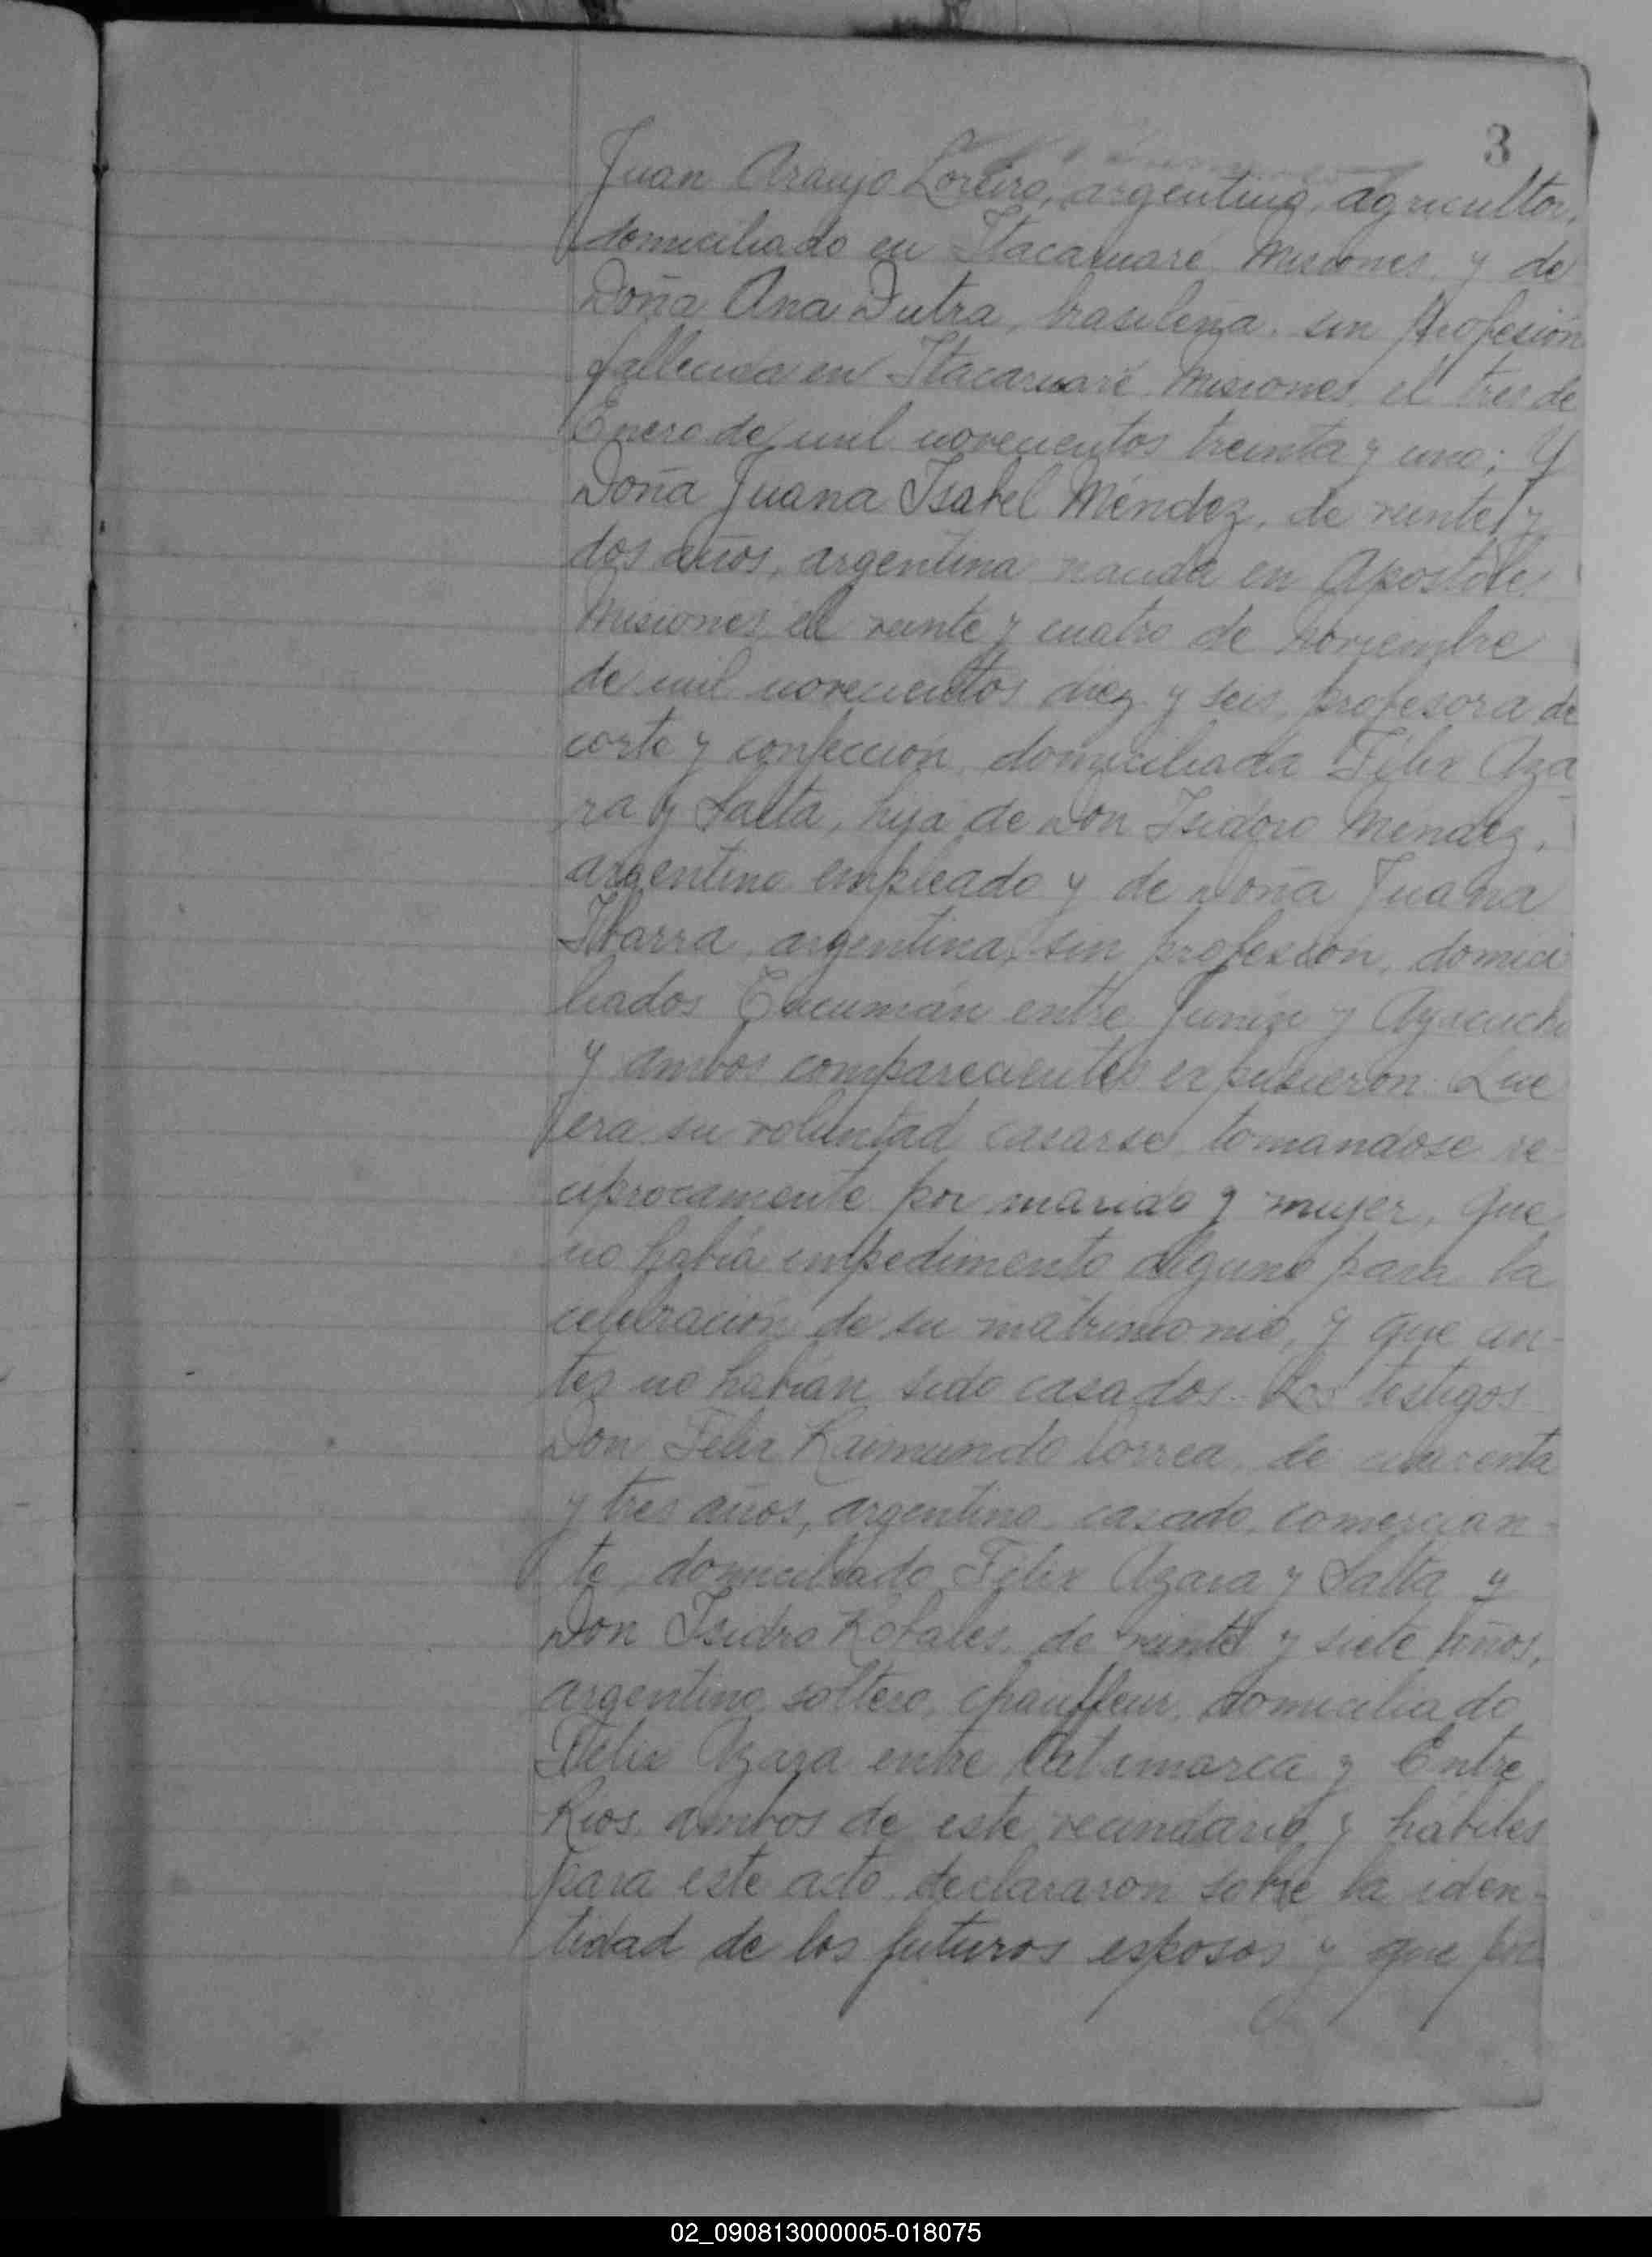 3
Juan Araujo Loreiro, argentino, agricultor,
domiciliado en Itacaruaré Misiones, y de
Doña Ana Dutra, brasileña, sin profesión
fallecida en Itacaruaré Misiones, el tres de
Enero de mil novecientos treinta y uno; Y
Doña Juana Isabel Méndez, de veinte y
dos años, argentina nacida en Apóstoles
Misiones el veinte y cuatro de noviembre
de mil novecientos diez y seis, profesora de
corte y confección, domiciliada Félix Aza-
ra y Salta, hija de Don Isidoro Méndez,
argentino empleado y de Doña Juana
Ibarra, argentina, sin profesión, domici
liados Tucumán entre Junín y Ayacucho
y ambos comparecientes expusieron: Que
era su voluntad casarse, tomandose re-
ciprocamente por marido y mujer, que
no había impedimento alguno para la
celebración de su matrimonio, y que an-
tes no habían sido casados. Los testigos
Don Félix Raimundo Correa, de cuarenta
y tres años, argentino casado, comercian-
te, domiciliado Félix Azara y Salta y
Don Isidro Robales, de veinte y siete años,
argentino, soltero, chauffeur, domiciliado
Félix Azara entre Catamarca y Entre
Ríos, ambos de este vecindario, y hábiles
para este acto, declararon sobre la iden-
tidad de los futuros esposos y que por
02_090813000005-018075